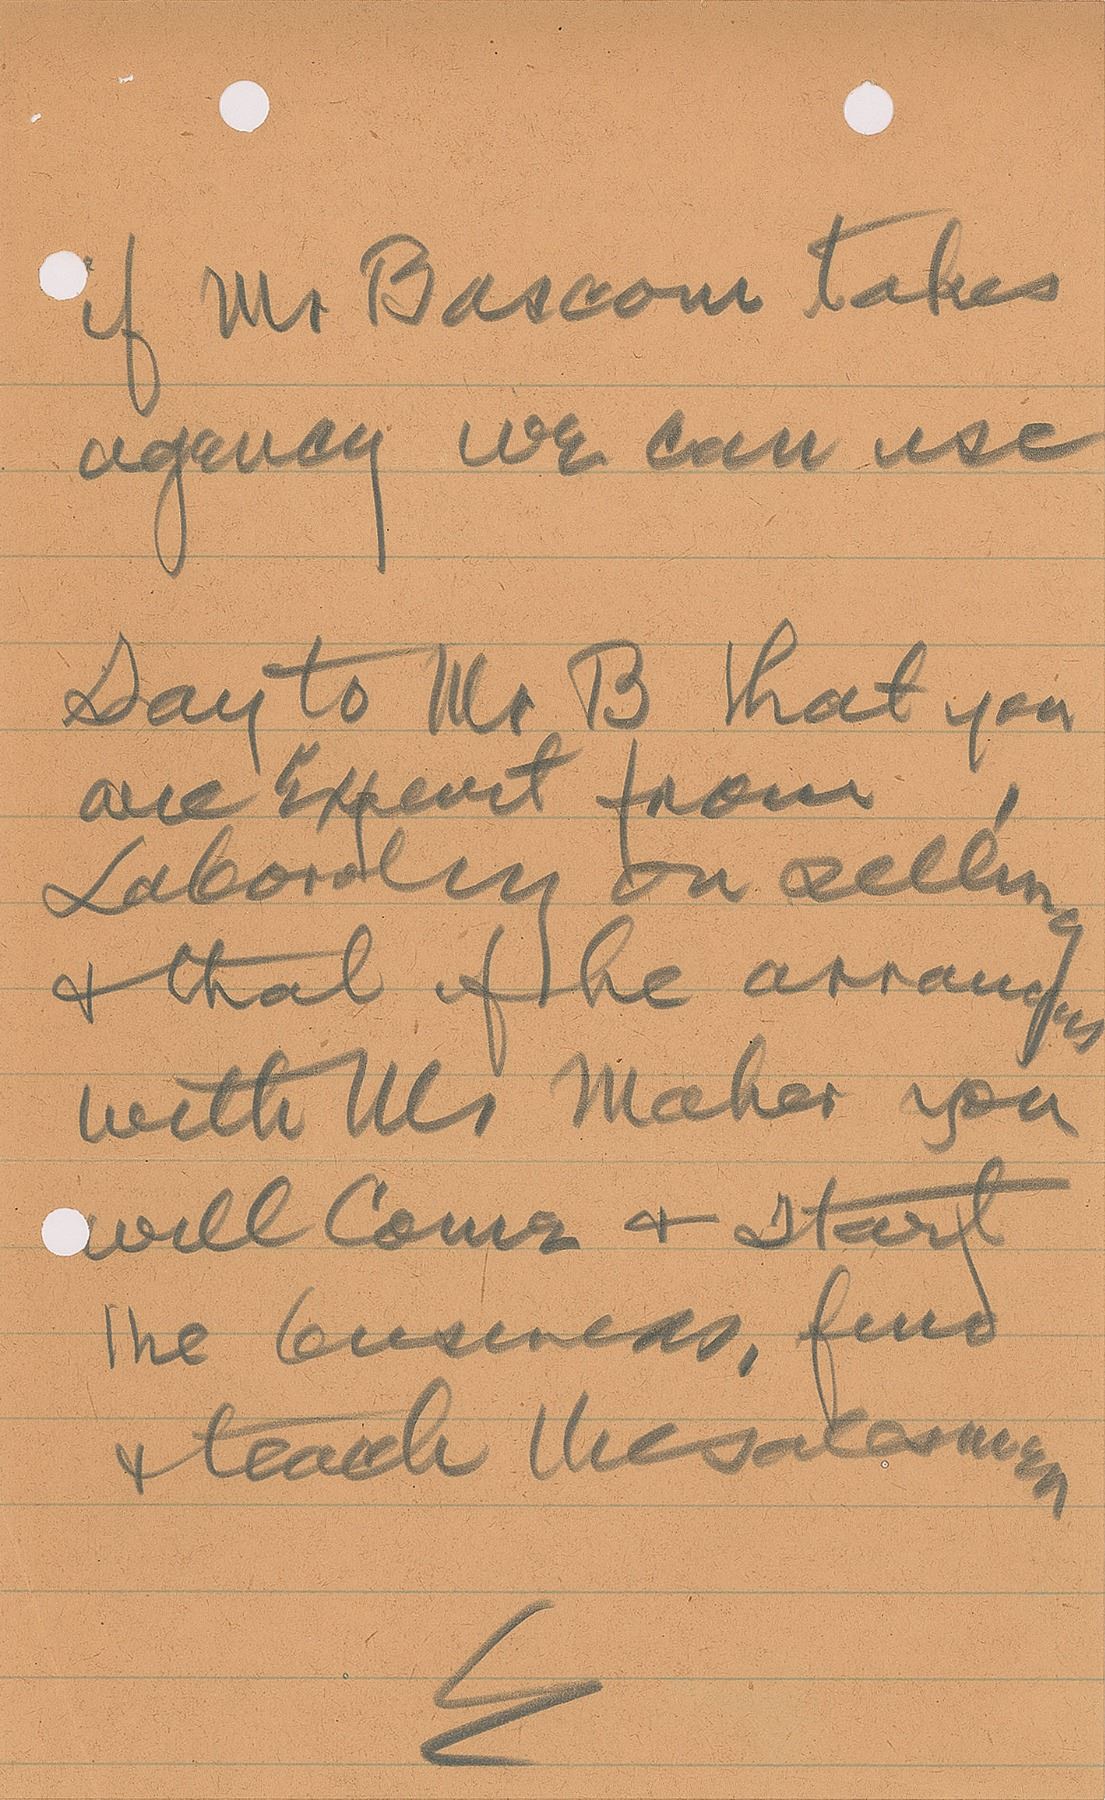 if Mr Bascom takes
agency we can use
Say to Mr B that you
are Expert from
Laboratory on selling
& that if he arranges
with Mr Maher you
will Come & Start
the business, find
& teach the salesmen
E